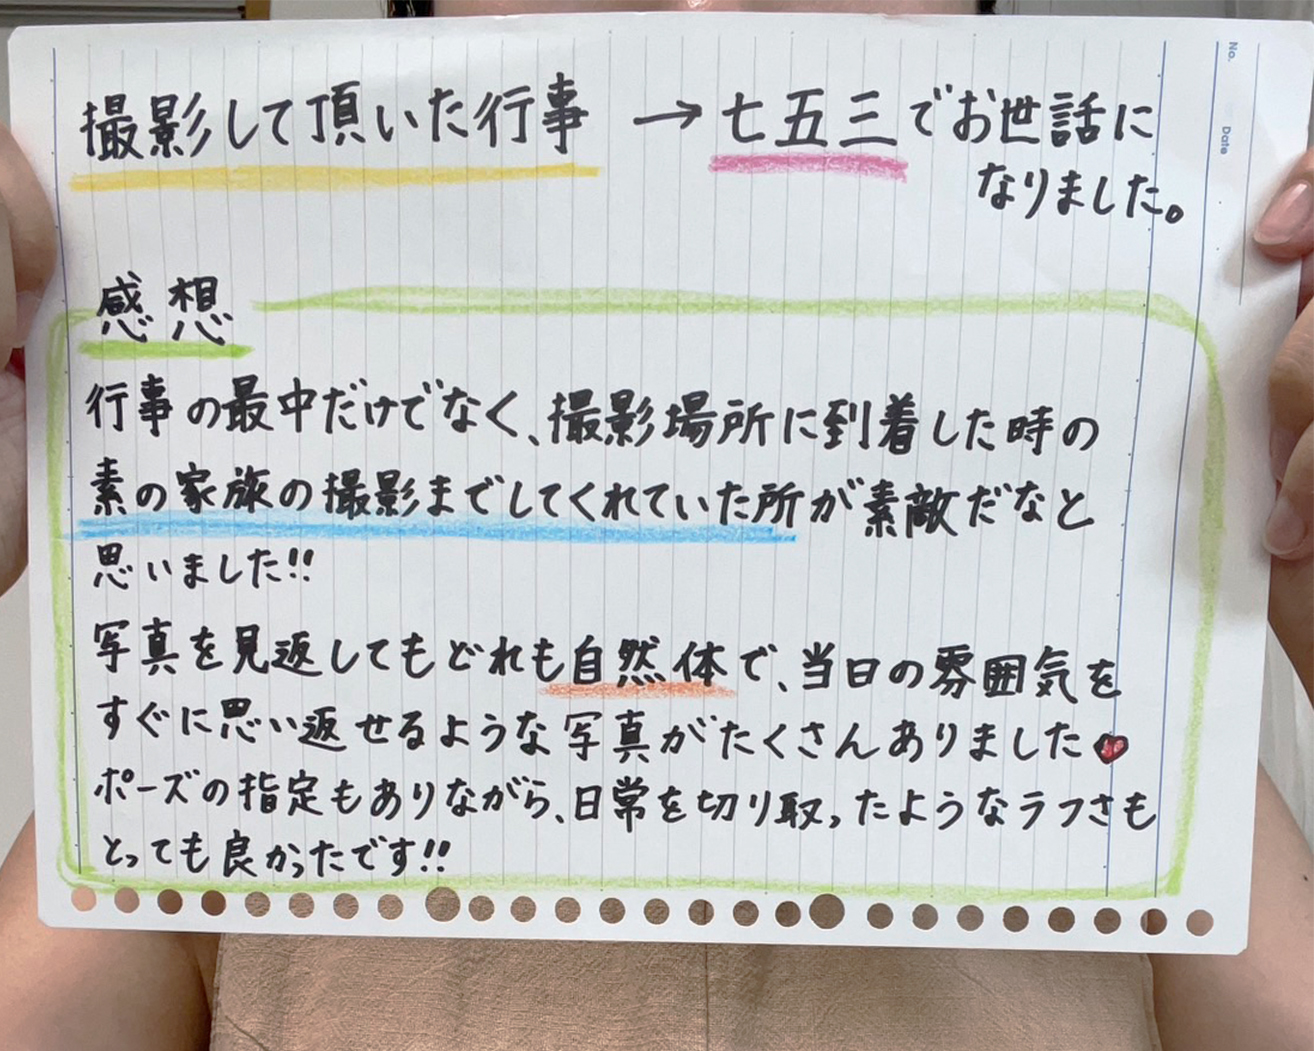 撮影して頂いた行事 → 七五三でお世話に
なりました。
感想
行事の最中だけでなく、撮影場所に到着した時の
素の家族の撮影までしてくれていた所が素敵だなと
思いました!!
写真を見返してもどれも自然体で、当日の雰囲気を
すぐに思い返せるような写真がたくさんありました♥
ポーズの指定もありながら、日常を切り取ったようなラフさも
とっても良かったです!!
No.
Date